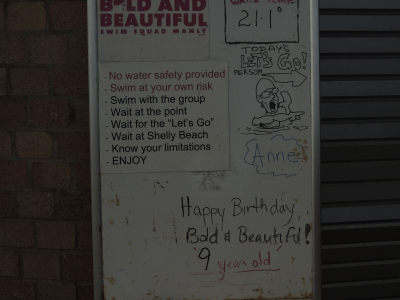 BOLD AND
BEAUTIFUL
SWIM SQUAD MANLY
WATER TEMP
21.1°
TODAY'S
LET'S GO!
PERSON
- No water safety provided
- Swim at your own risk
- Swim with the group
- Wait at the point
- Wait for the "Let's Go"
- Wait at Shelly Beach
- Know your limitations
- ENJOY
Anne
Happy Birthday
Bold & Beautiful!
9 year old